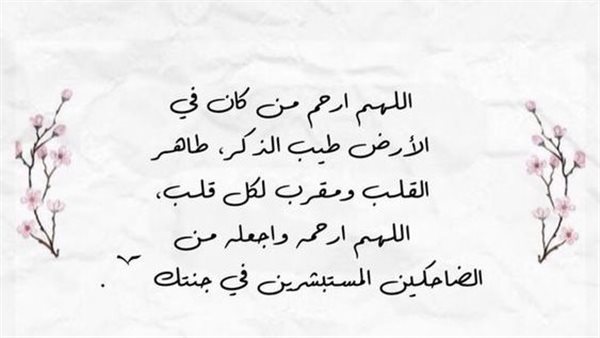 اللهم ارحم من كان في
الأرض طيب الذكر، طاهر
القلب ومقرب لكل قلب،
اللهم ارحمه واجعله من
الضاحكين المستبشرين في جنتك .